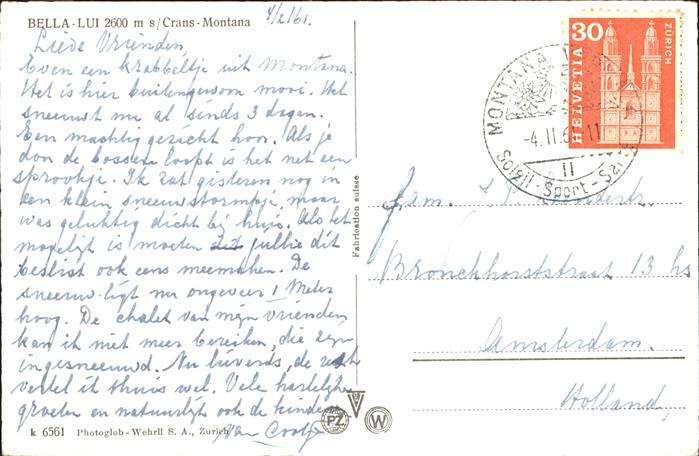 BELLA-LUI 2600 m s/Crans-Montana
4/2/61.
Lieve Vrienden,
Even een krabbeltje uit Montana.
Het is hier buitengewoon mooi. Het
sneeuwt nu al sinds 3 dagen.
Een machtig gezicht hoor. Als je
door de bossen loopt is het net een
sprookje. Ik zat gisteren nog in
een klein sneeuwstormpje, maar
was gelukkig dicht bij huis. Als het
mogelijk is moeten jullie dit
beslist ook eens meemaken. De
sneeuw ligt nu ongeveer 1 Meter
hoog. De chalet van mijn vrienden
kan ik niet meer bereiken, die zijn
ingesneeuwd. Nu lieverds, de rest
vertel ik thuis wel. Vele hartelijke
groeten en natuurlijk ook de kinderen
van Cootje
k 6561 Photoglob-Wehrli S. A., Zurich
Fabrication suisse
PZ
W
HELVETIA 30
ZÜRICH
MONTANA
-4.II.6 -11
II
Soleil-Sport-
Fam.
Bronckhorststraat 13 hs
Amsterdam.
Holland.